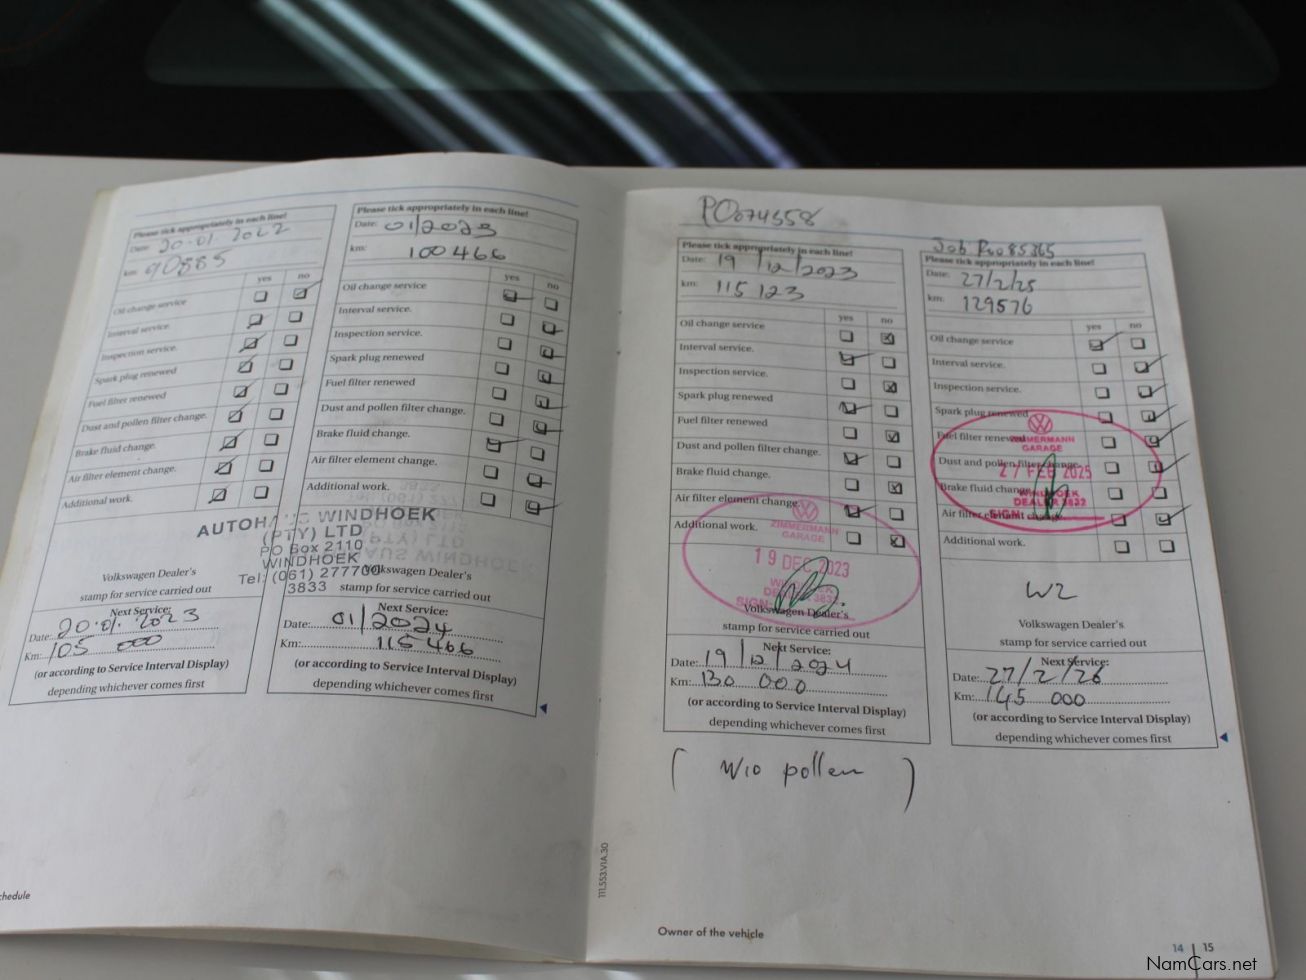 Please tick appropriately in each line!
Date: 20·01 2022
km: 90885
yes no
Oil change service
Interval service.
Inspection service.
Spark plug renewed
Fuel filter renewed
Dust and pollen filter change.
Brake fluid change.
Air filter element change.
Additional work.
Volkswagen Dealer's
stamp for service carried out
Next Service:
Date: 20·01·2023
Km: 105 000
(or according to Service Interval Display)
depending whichever comes first
Please tick appropriately in each line!
Date: 01/2023
km: 100466
yes no
Oil change service
Interval service.
Inspection service.
Spark plug renewed
Fuel filter renewed
Dust and pollen filter change.
Brake fluid change.
Air filter element change.
Additional work.
AUTOHAUS WINDHOEK
(PTY) LTD
PO Box 2110
WINDHOEK
Tel: (061) 277700
3833
Volkswagen Dealer's
stamp for service carried out
Next Service:
Date: 01/2024
Km: 115466
(or according to Service Interval Display)
depending whichever comes first
chedule
111.553.V1A.30
Please tick appropriately in each line!
Date: 19/12/2023
km: 115 123
yes no
Oil change service
Interval service.
Inspection service.
Spark plug renewed
Fuel filter renewed
Dust and pollen filter change.
Brake fluid change.
Air filter element change.
Additional work.
ZIMMERMANN
GARAGE
19 DEC 2023
SIGN
Volkswagen Dealer's
stamp for service carried out
Next Service:
Date: 19/12/2024
Km: 130 000
(or according to Service Interval Display)
depending whichever comes first
(W/o pollen)
Job
Please tick appropriately in each line!
Date: 27/2/25
km: 129576
yes no
Oil change service
Interval service.
Inspection service.
Spark plug renewed
Fuel filter renewed
Dust and pollen filter change.
Brake fluid change.
Air filter element change.
Additional work.
ZIMMERMANN
GARAGE
27 FEB 2025
WINDHOEK
DEALER 3832
SIGN
W2
Volkswagen Dealer's
stamp for service carried out
Next Service:
Date: 27/2/26
Km: 145 000
(or according to Service Interval Display)
depending whichever comes first
Owner of the vehicle
14 | 15
NamCars.net